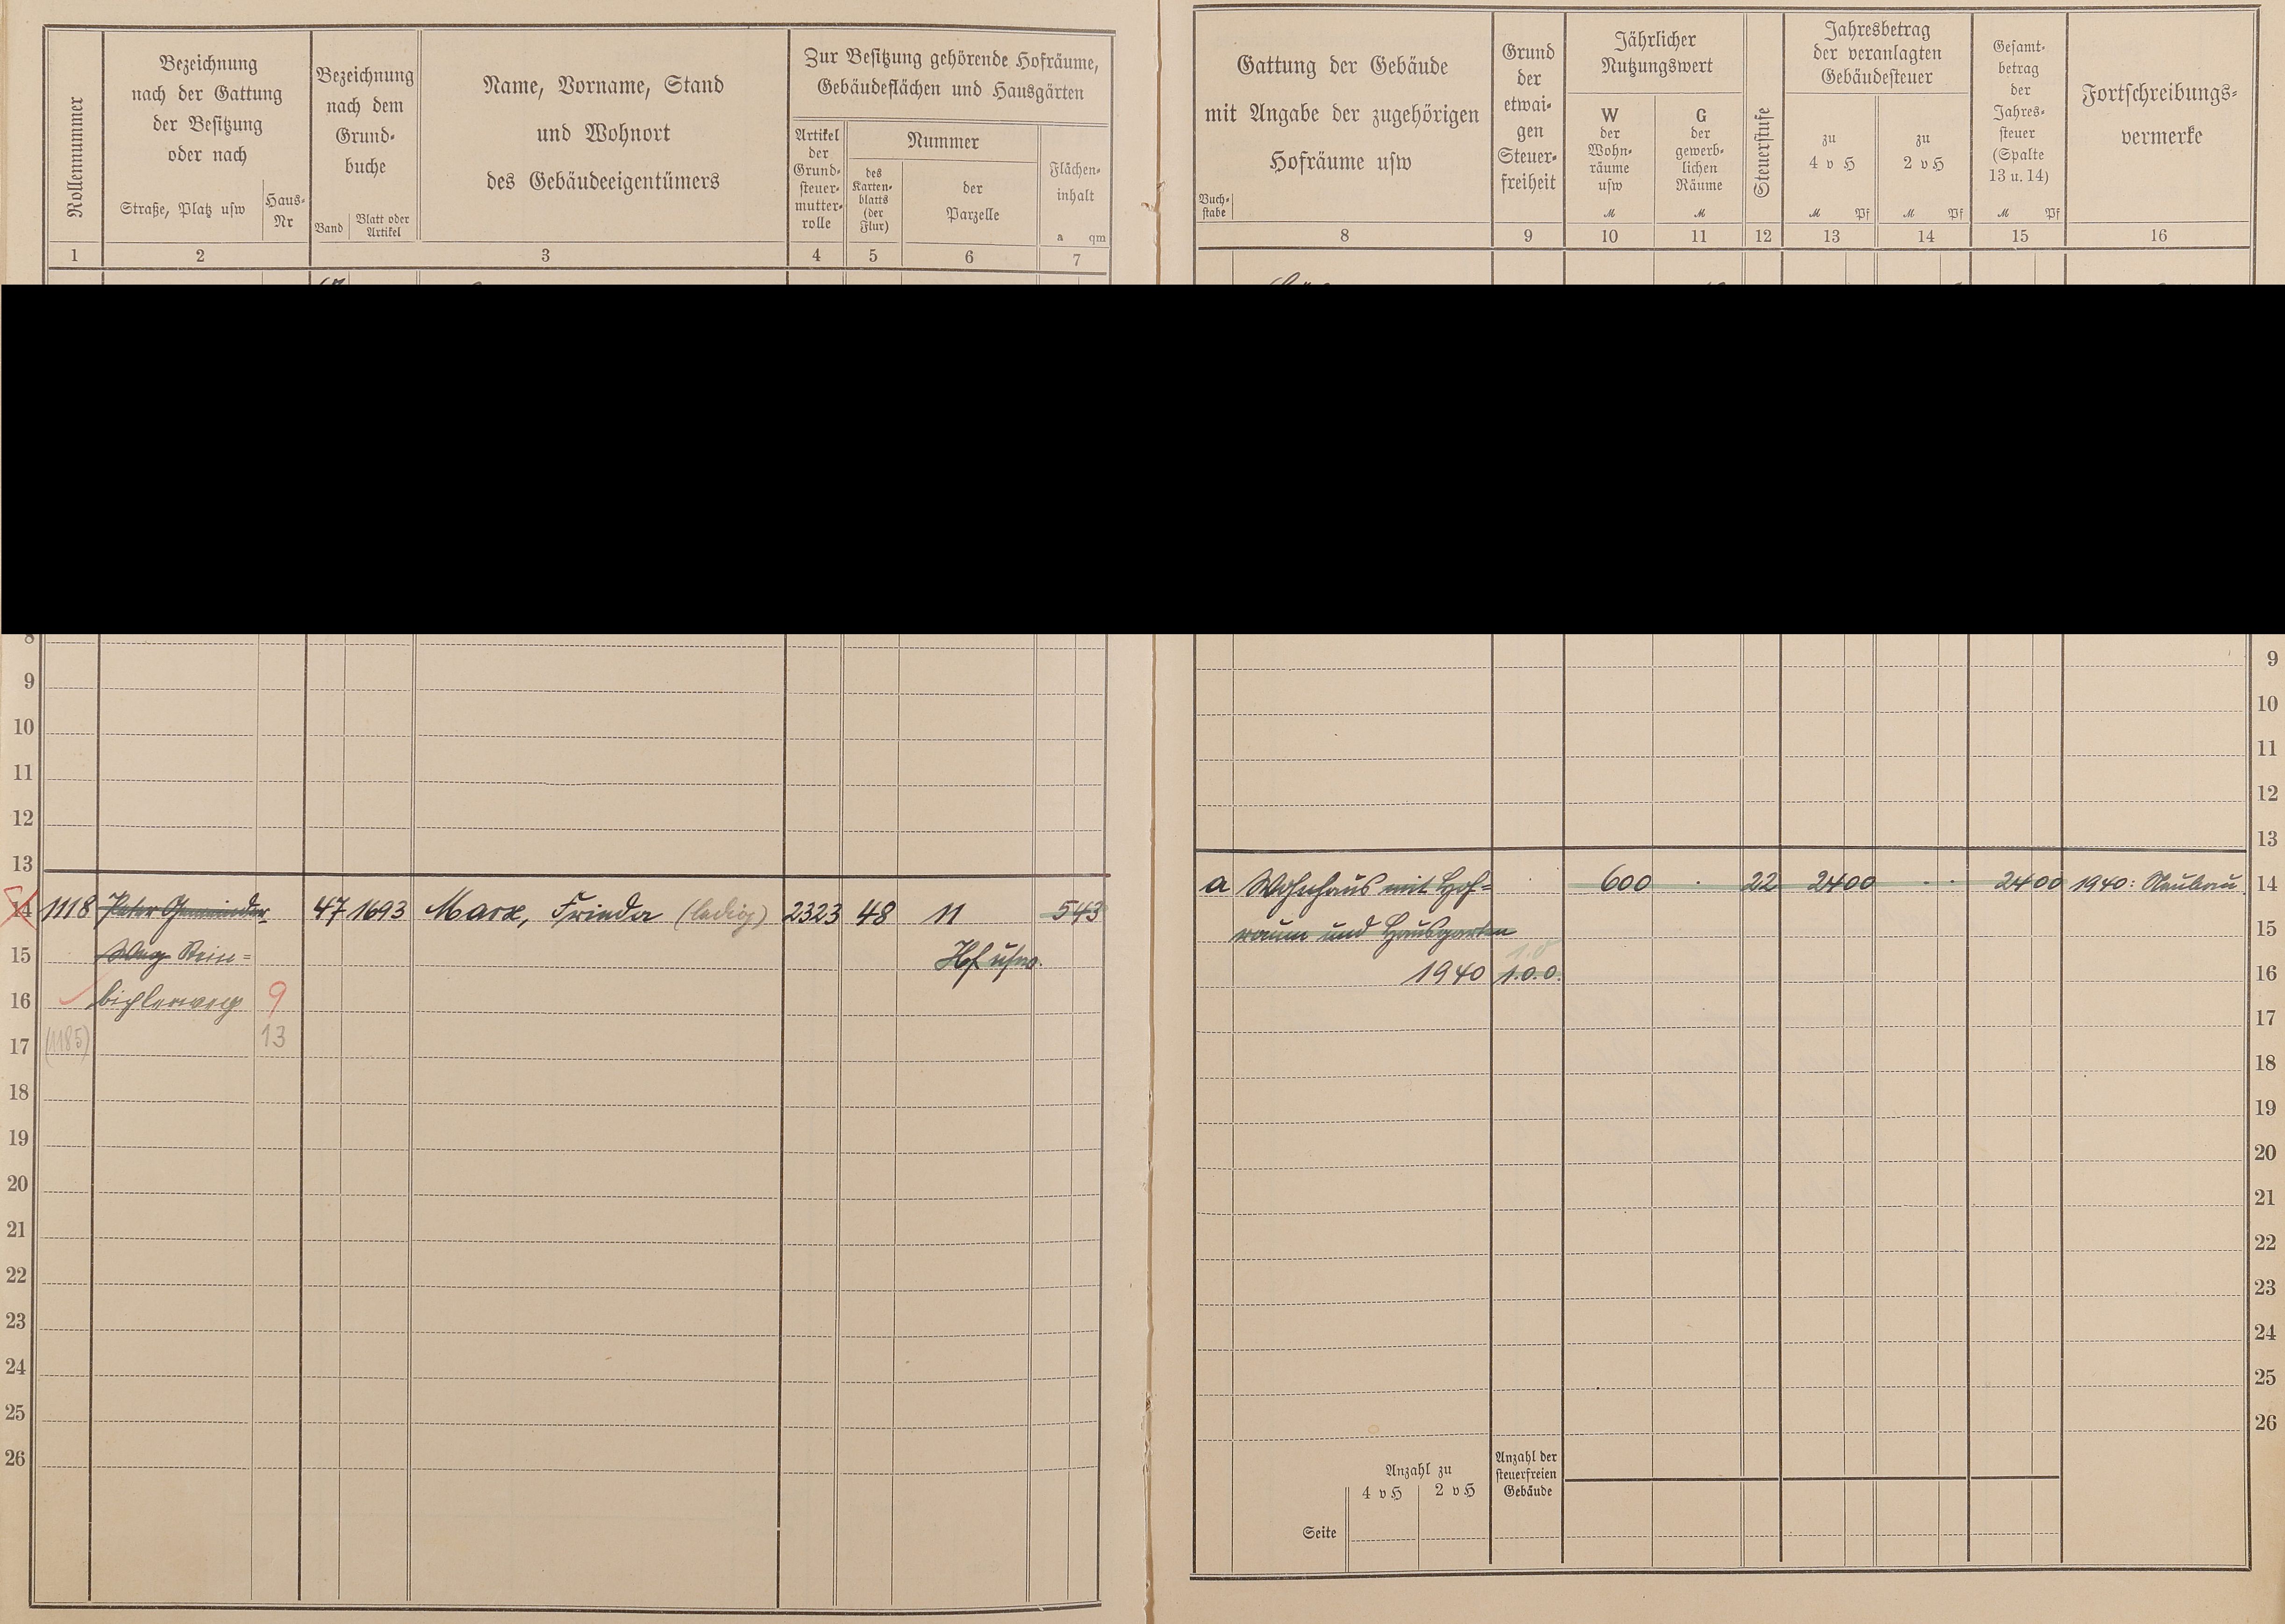 Rollennummer
Bezeichnung
nach der Gattung
der Besitzung
oder nach
Straße, Platz usw
Haus-
Nr
Bezeichnung
nach dem
Grund-
buche
Band
Blatt oder
Artikel
Name, Vorname, Stand
und Wohnort
des Gebäudeeigentümers
Zur Besitzung gehörende Hofräume,
Gebäudeflächen und Hausgärten
Artikel
der
Grund-
steuer-
mutter-
rolle
Nummer
des
Karten-
blatts
(der
Flur)
der
Parzelle
Flächen-
inhalt
a qm
1 2 3 4 5 6 7
Gattung der Gebäude
mit Angabe der zugehörigen
Hofräume usw
Buch-
stabe
Grund
der
etwai-
gen
Steuer-
freiheit
Jährlicher
Nutzungswert
W
der
Wohn-
räume
usw
M
G
der
gewerb-
lichen
Räume
M
Steuerstufe
Jahresbetrag
der veranlagten
Gebäudesteuer
zu
4 v H
M Pf
zu
2 v H
M Pf
Gesamt-
betrag
der
Jahres-
steuer
(Spalte
13 u. 14)
M Pf
Fortschreibungs-
vermerke
8 9 10 11 12 13 14 15 16
8
9
10
11
12
13
14 1118 Peter Gemeinder 47 1693 Marx, Frieda (ledig) 2323 48 11 543
15 Weg Stein= Hf usw.
16 bichlerweg 9
17 (1185) 13
18
19
20
21
22
23
24
25
26
9
10
11
12
13
a Wohnhaus mit Hof= 600 22 2400 2400 1940: Neubau 14
raum und Hausgarten 15
1.0
1940 1.0.0. 16
17
18
19
20
21
22
23
24
25
26
Anzahl zu
4 v H 2 v H
Anzahl der
steuerfreien
Gebäude
Seite